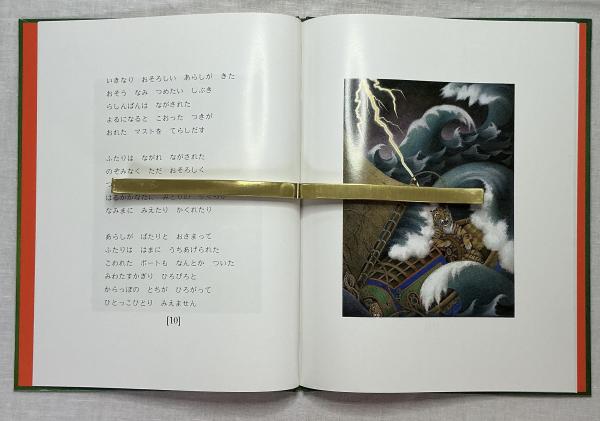 いきなり おそろしい あらしが きた
おそう なみ つめたい しぶき
らしんばんは ながされた
よるになると こおった つきが
おれた マストを てらしだす
ふたりは ながれ ながされた
のぞみなく ただ おそろしく
はるかかなたに
なみまに みえたり かくれたり
あらしが ぱたりと おさまって
ふたりは はまに うちあげられた
こわれた ボートも なんとか ついた
みわたすかぎり ひろびろと
からっぽの とちが ひろがって
ひとっこひとり みえません
[10]